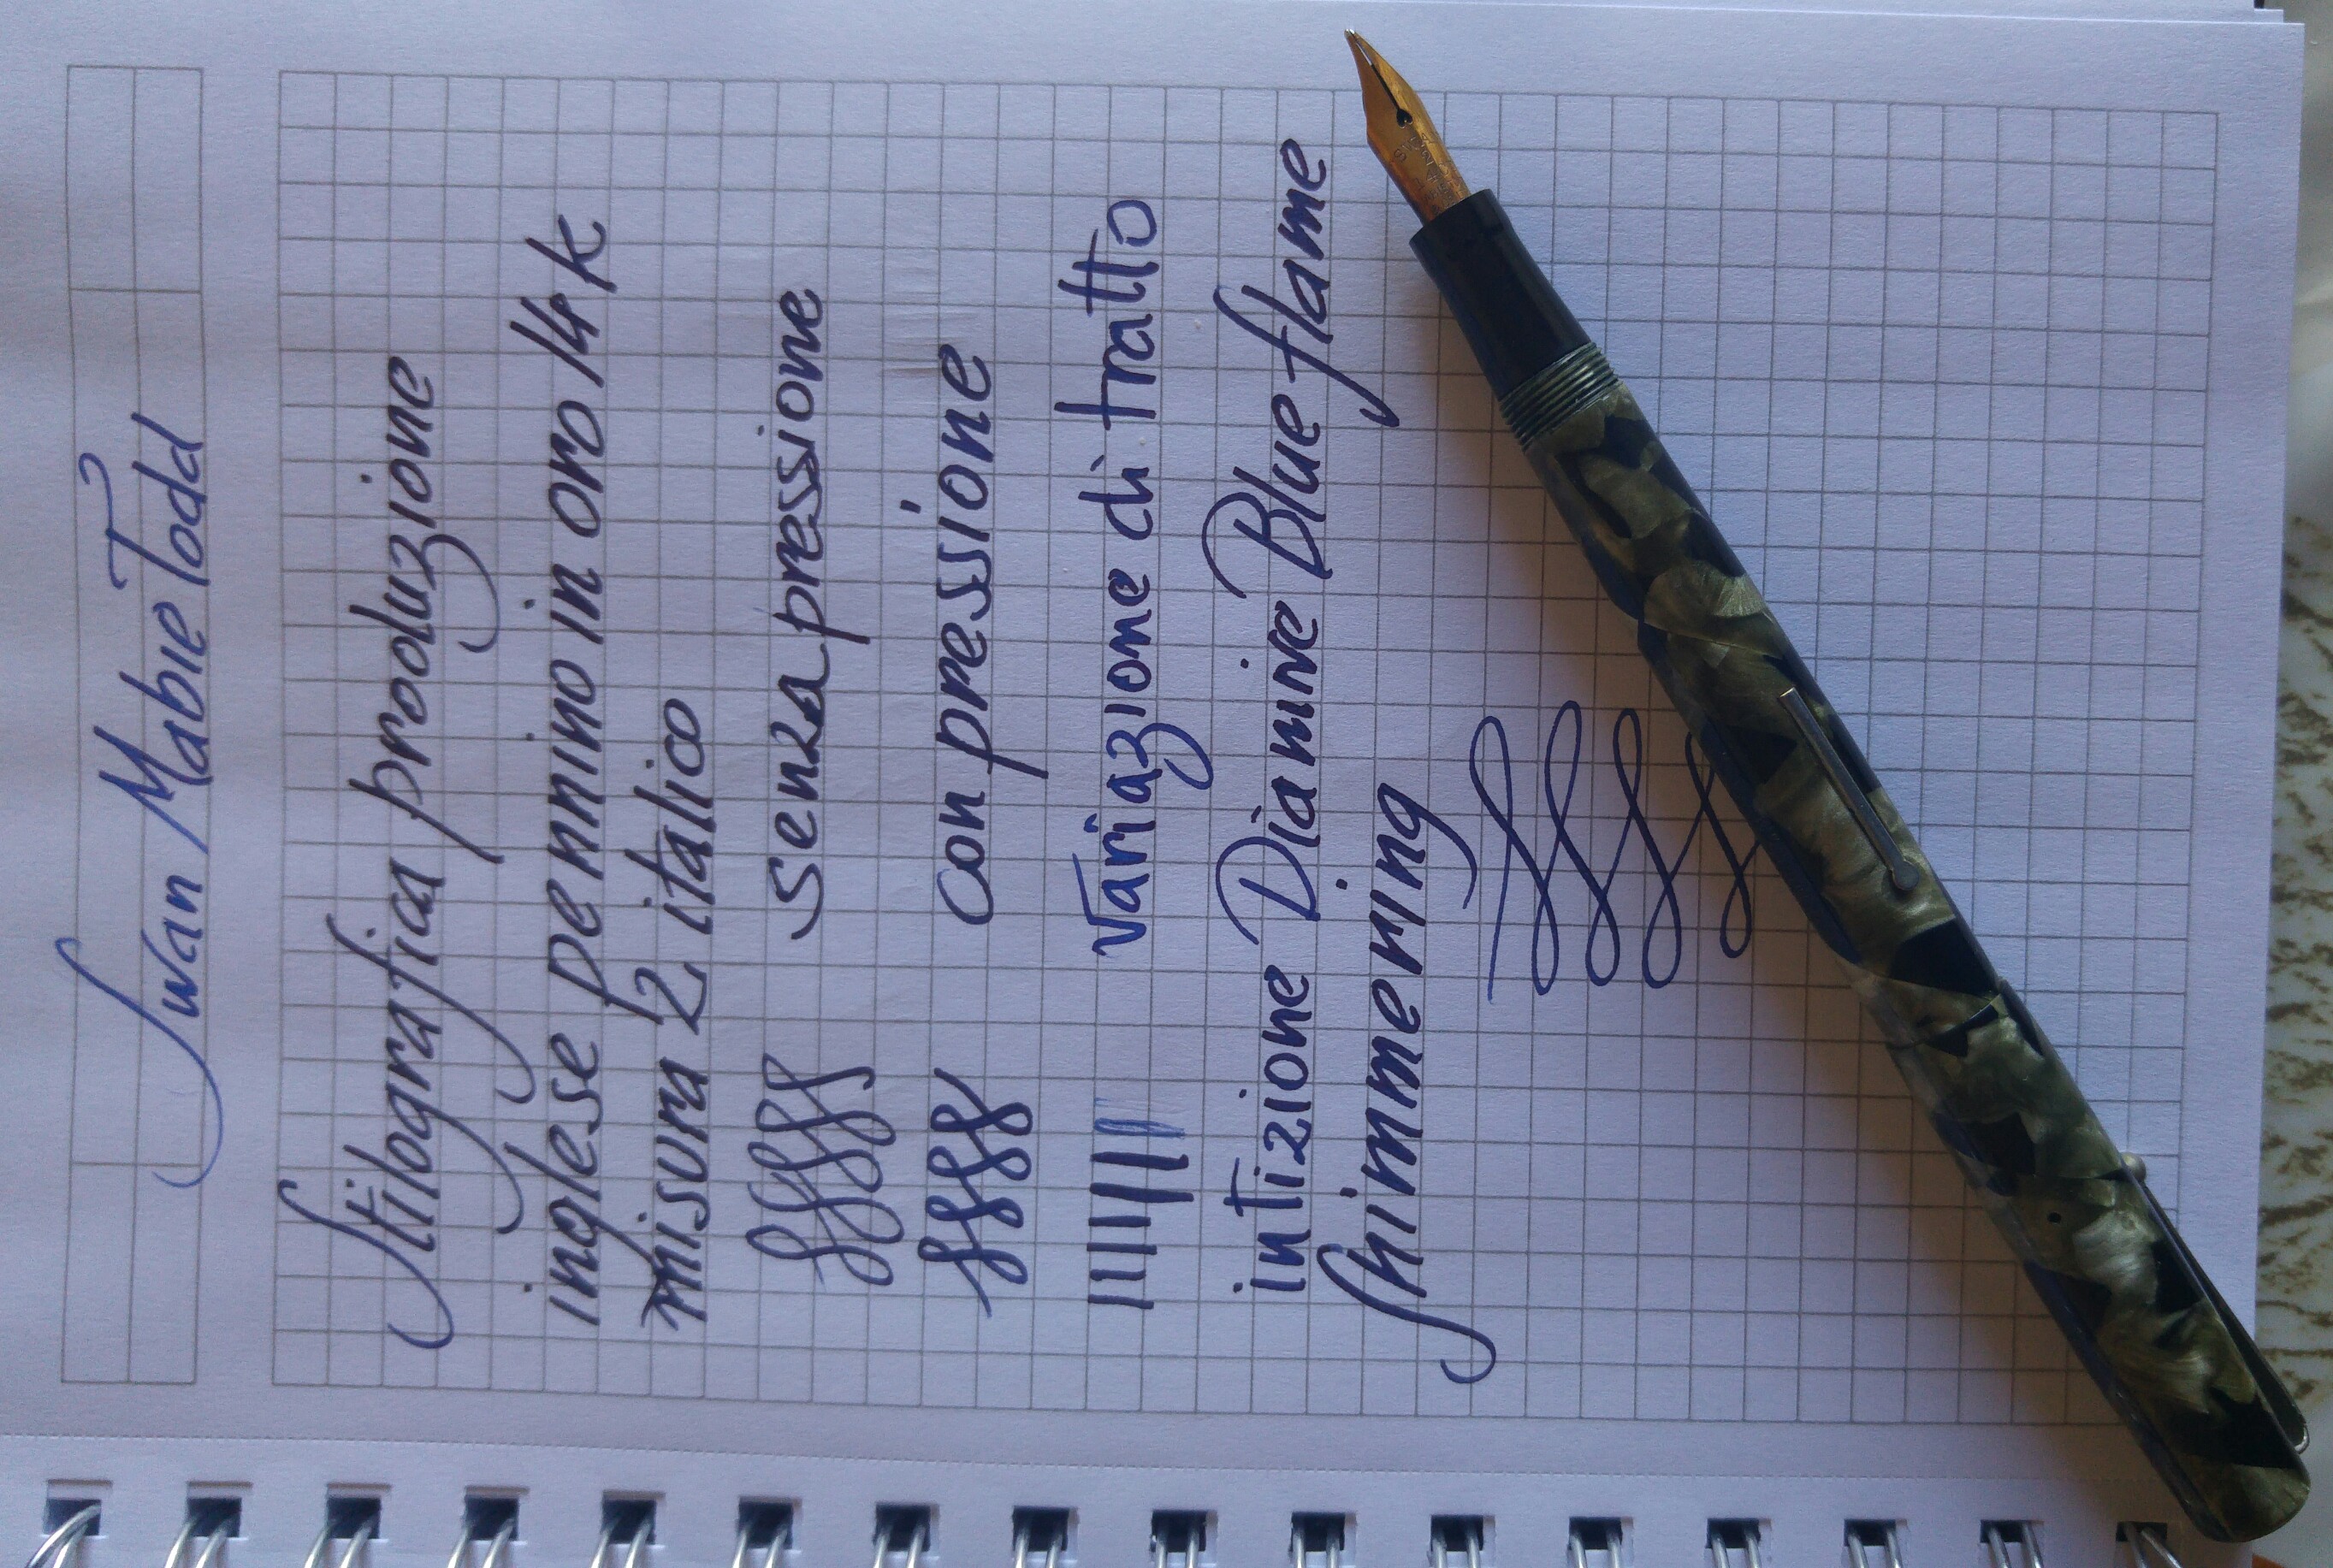 Swan Mabie Todd
Stilografica produzione
inglese pennino in oro 14k
misura 2 italico
senza pressione
con pressione
variazione di tratto
intizione Diamine Blue flame
Shimmering